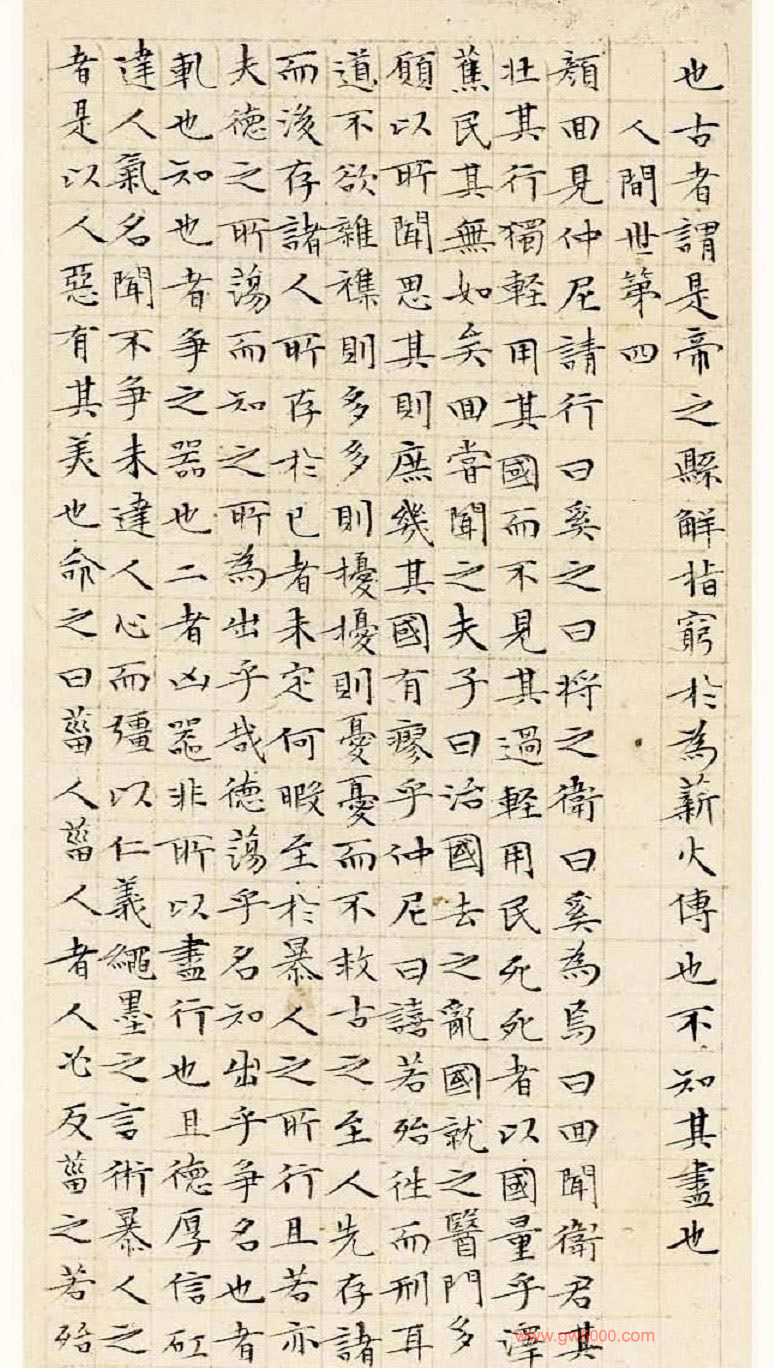 也古者謂是帝之縣解指窮於為薪火傳也不知其盡也
人間世第四
顏回見仲尼請行曰奚之曰将之衛曰奚為焉曰回聞衛君其
壮其行獨軽用其國而不見其過軽用民死死者以國量乎澤
蕉民其無如矣回嘗聞之夫子曰治國去之亂國就之醫門多
願以所聞思其則庶幾其國有瘳乎仲尼曰譆若殆往而刑耳
道不欲雜雜則多多則擾擾則憂憂而不救古之至人先存諸
而後存諸人所存於己者未定何暇至於暴人之所行且若亦
夫德之所蕩而知之所為出乎哉德蕩乎名知出乎爭名也者
軋也知也者爭之器也二者凶器非所以盡行也且德厚信矼
達人氣名聞不爭未達人心而彊以仁義繩墨之言術暴人之
者是以人惡有其美也命之曰菑人菑人者人必反菑之若殆
www.gw8000.com